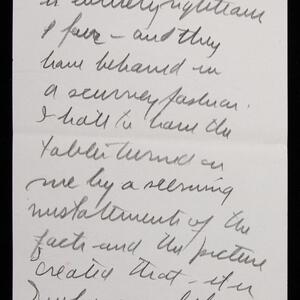 is entirely right and
& fair – and they
have behaved in
a scurvey fashion.
I hate to have the
tables turned on
me by a seeming
misstatement of the
facts – and the picture
created that – it is